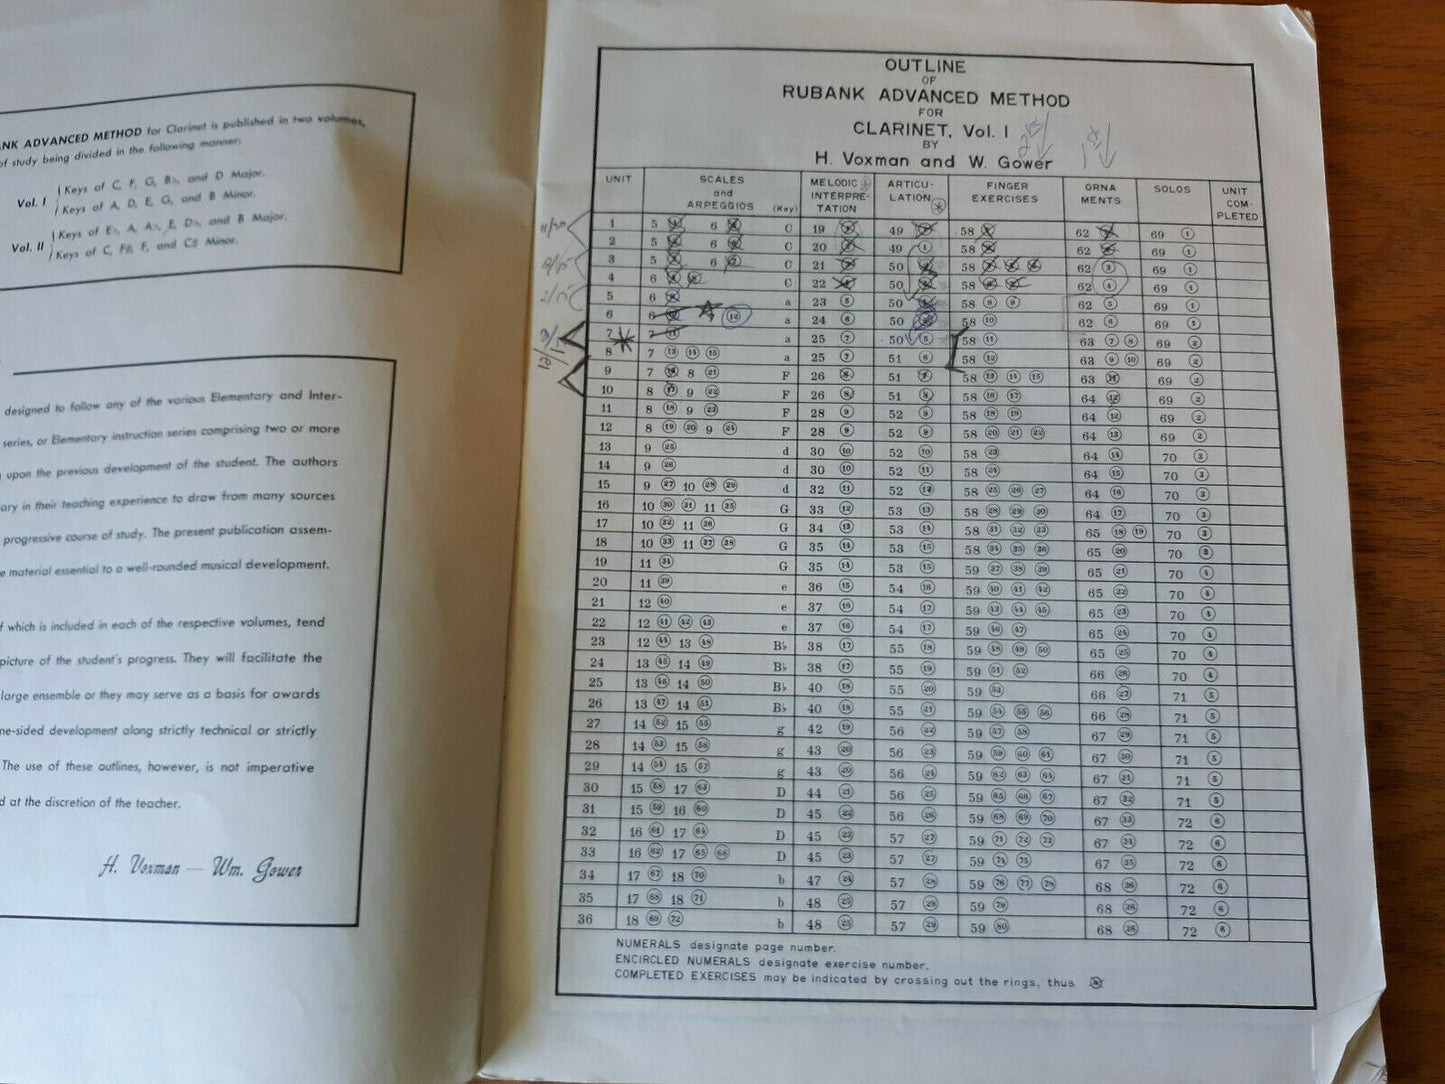 NK ADVANCED METHOD for Clarinet is published in two volumes,
of study being divided in the following manner:
Vol. I Keys of C, F, G, B♭, and D Major.
Keys of A, D, E, G, and B Minor.
Vol. II Keys of E♭, A, A♭, E, D♭, and B Major.
Keys of C, F♯, F, and C♯ Minor.
designed to follow any of the various Elementary and Inter-
series, or Elementary instruction series comprising two or more
upon the previous development of the student. The authors
ary in their teaching experience to draw from many sources
progressive course of study. The present publication assem-
e material essential to a well-rounded musical development.
f which is included in each of the respective volumes, tend
picture of the student's progress. They will facilitate the
large ensemble or they may serve as a basis for awards
ne-sided development along strictly technical or strictly
The use of these outlines, however, is not imperative
d at the discretion of the teacher.
H. Voxman — Wm. Gower
OUTLINE
OF
RUBANK ADVANCED METHOD
FOR
CLARINET, Vol. I
BY
H. Voxman and W. Gower
UNIT SCALES and ARPEGGIOS (Key) MELODIC INTERPRE-TATION ARTICU-LATION FINGER EXERCISES ORNA MENTS SOLOS UNIT COM-PLETED
1 5 6 C 19 49 58 62 69 ①
2 5 6 C 20 49 ① 58 62 69 ①
3 5 6 C 21 50 58 62 ③ 69 ①
4 6 C 22 50 58 62 ④ 69 ①
5 6 a 23 ⑤ 50 58 ⑧ ⑨ 62 ⑤ 69 ①
6 6 7 ⑫ a 24 ⑥ 50 58 ⑩ 62 ⑥ 69 ①
7 7 ⑪ a 25 ⑦ 50 ⑤ 58 ⑪ 63 ⑦ ⑧ 69 ②
8 7 ⑬ ⑭ ⑮ a 25 ⑦ 51 ⑥ 58 ⑫ 63 ⑨ ⑩ 69 ②
9 7 ⑯ 8 ㉑ F 26 ⑧ 51 ⑦ 58 ⑬ ⑭ ⑮ 63 ⑪ 69 ②
10 8 ⑰ 9 ㉒ F 26 ⑧ 51 ⑧ 58 ⑯ ⑰ 64 ⑫ 69 ②
11 8 ⑱ 9 ㉓ F 28 ⑨ 52 ⑨ 58 ⑱ ⑲ 64 ⑫ 69 ②
12 8 ⑲ ⑳ 9 ㉔ F 28 ⑨ 52 ⑨ 58 ⑳ ㉑ ㉒ 64 ⑬ 69 ②
13 9 ㉕ d 30 ⑩ 52 ⑩ 58 ㉓ 64 ⑭ 70 ③
14 9 ㉖ d 30 ⑩ 52 ⑪ 58 ㉔ 64 ⑮ 70 ③
15 9 ㉗ 10 ㉘ ㉙ d 32 ⑪ 52 ⑫ 58 ㉕ ㉖ ㉗ 64 ⑯ 70 ③
16 10 ㉚ ㉛ 11 ㉟ G 33 ⑫ 53 ⑬ 58 ㉘ ㉙ ㉚ 64 ⑰ 70 ③
17 10 ㉜ 11 ㊱ G 34 ⑬ 53 ⑭ 58 ㉛ ㉜ ㉝ 65 ⑱ ⑲ 70 ③
18 10 ㉝ 11 ㊲ ㊳ G 35 ⑭ 53 ⑮ 58 ㉞ ㉟ ㊱ 65 ⑳ 70 ③
19 11 ㉞ G 35 ⑭ 53 ⑮ 59 ㊲ ㊳ ㊴ 65 ㉑ 70 ④
20 11 ㊴ e 36 ⑮ 54 ⑯ 59 ㊵ ㊶ ㊷ 65 ㉒ 70 ④
21 12 ㊵ e 37 ⑯ 54 ⑰ 59 ㊸ ㊹ ㊺ 65 ㉓ 70 ④
22 12 ㊶ ㊷ ㊸ e 37 ⑯ 54 ⑰ 59 ㊻ ㊼ 65 ㉔ 70 ④
23 12 ㊹ 13 ㊽ B♭ 38 ⑰ 55 ⑱ 59 ㊽ ㊾ ㊿ 65 ㉕ 70 ④
24 13 ㊺ 14 ㊾ B♭ 38 ⑰ 55 ⑲ 59 (51) (52) 66 ㉖ 70 ④
25 13 ㊻ 14 ㊿ B♭ 40 ⑱ 55 ⑳ 59 (53) 66 ㉗ 71 ⑤
26 13 ㊼ 14 (51) B♭ 40 ⑱ 55 ㉑ 59 (54) (55) (56) 66 ㉘ 71 ⑤
27 14 (52) 15 (55) g 42 ⑲ 56 ㉒ 59 (57) (58) 67 ㉙ 71 ⑤
28 14 (53) 15 (56) g 43 ⑳ 56 ㉓ 59 (59) (60) (61) 67 ㉚ 71 ⑤
29 14 (54) 15 (57) g 43 ⑳ 56 ㉔ 59 (62) (63) (64) 67 ㉛ 71 ⑤
30 15 (58) 17 (63) D 44 ㉑ 56 ㉕ 59 (65) (66) (67) 67 ㉜ 71 ⑤
31 15 (59) 16 (60) D 45 ㉒ 56 ㉖ 59 (68) (69) (70) 67 ㉝ 72 ⑥
32 16 (61) 17 (64) D 45 ㉓ 57 ㉗ 59 (71) (72) (73) 67 ㉞ 72 ⑥
33 16 (62) 17 (65) (66) D 45 ㉓ 57 ㉗ 59 (74) (75) 67 ㉟ 72 ⑥
34 17 (67) 18 (70) b 47 ㉔ 57 ㉘ 59 (76) (77) (78) 68 ㊱ 72 ⑥
35 17 (68) 18 (71) b 48 ㉕ 57 ㉙ 59 (79) 68 ㊱ 72 ⑥
36 18 (69) (72) b 48 ㉕ 57 ㉙ 59 (80) 68 ㊱ 72 ⑥
NUMERALS designate page number.
ENCIRCLED NUMERALS designate exercise number.
COMPLETED EXERCISES may be indicated by crossing out the rings, thus